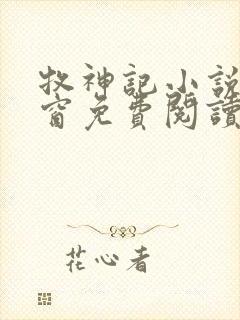 牧神記小說
窗免費閱讀
花心者